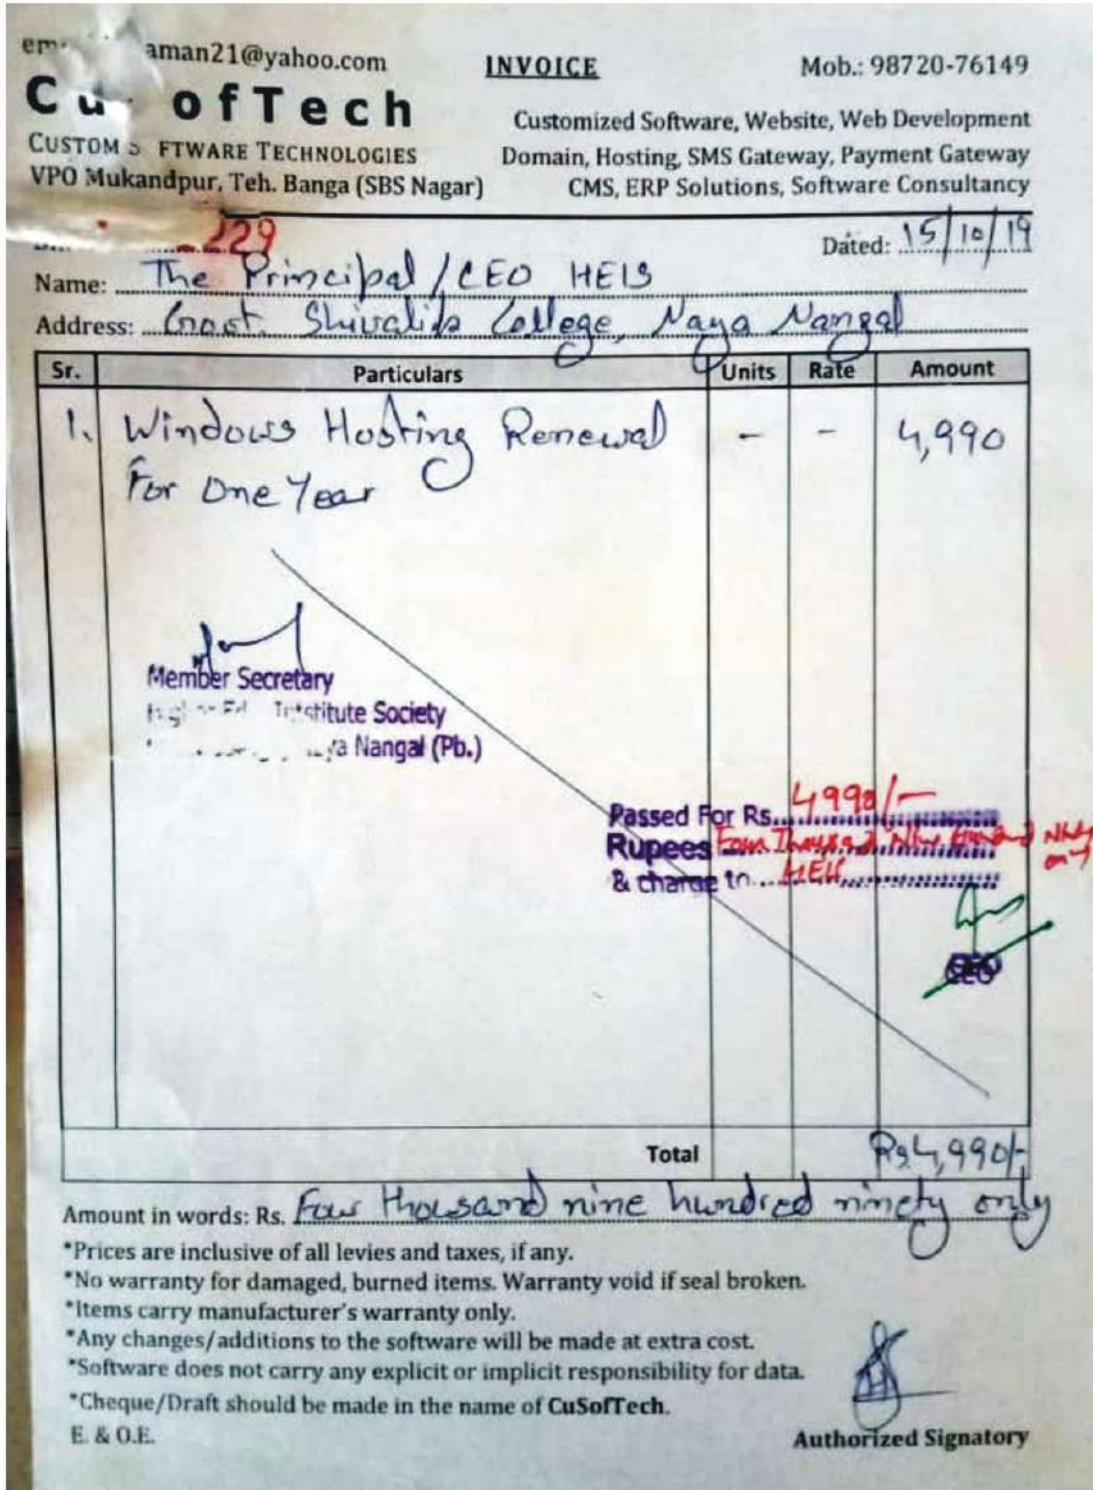 aman21@yahoo.com
INVOICE
Mob.: 98720-76149
ofTech
Customized Software, Website, Web Development
CUSTOM FTWARE TECHNOLOGIES
Domain, Hosting, SMS Gateway, Payment Gateway
VPO Mukandpur, Teh. Banga (SBS Nagar)
CMS, ERP Solutions, Software Consultancy
229
Dated: 15/10/19
Name: The Principal/CEO HEIS
Address: Govt. Shivalik College, Naya Nangal
Sr. Particulars Units Rate Amount
1. Windows Hosting Renewal - - 4,990
For One Year
Member Secretary
Institute Society
Nangal (Pb.)
Passed For Rs. 4990/-
Rupees Four Thousand Nine Hundred Ninty only
& charge to HEIS
CEO
Total Rs 4,990/-
Amount in words: Rs. Four thousand nine hundred ninety only
*Prices are inclusive of all levies and taxes, if any.
*No warranty for damaged, burned items. Warranty void if seal broken.
*Items carry manufacturer's warranty only.
*Any changes/additions to the software will be made at extra cost.
*Software does not carry any explicit or implicit responsibility for data.
*Cheque/Draft should be made in the name of CuSofTech.
E. & O.E.
Authorized Signatory